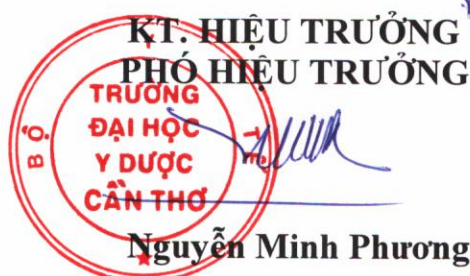 KT. HIỆU TRƯỞNG
PHÓ HIỆU TRƯỞNG
BỘ Y TẾ
TRƯỜNG
ĐẠI HỌC
Y DƯỢC
CẦN THƠ
Nguyễn Minh Phương